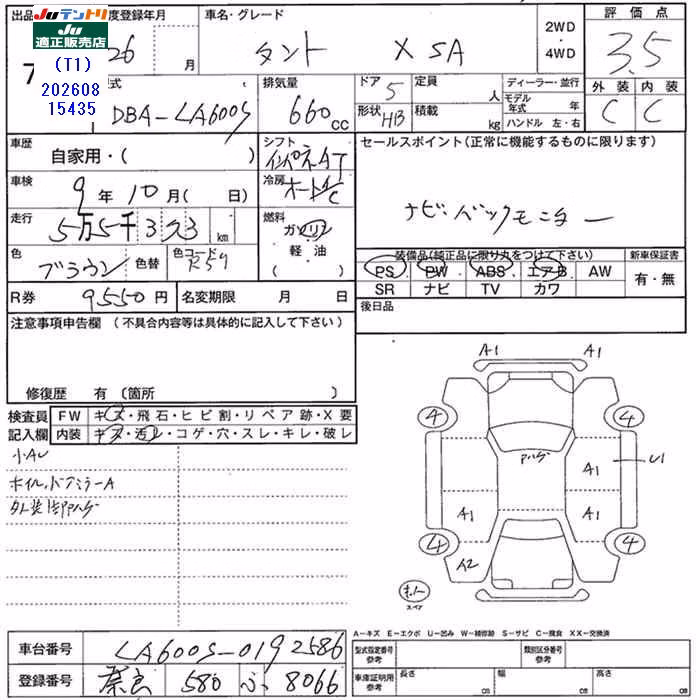 出品 度登録年月 車名・グレード 2WD 評価点
Juテントリ
Ju
適正販売店
(T1)
202608
15435
7 26 月 タント X SA 4WD 3.5
式 排気量 ドア 5 定員 人 ディーラー・並行 外装 内装
DBA-LA600S 660 cc 形状 HB 積載 kg モデル年式 年 C C
ハンドル 左・右
車歴 自家用・( ) シフト インパネAT セールスポイント(正常に機能するものに限ります)
車検 9 年 10 月( 日) 冷房 オートA/C
ナビ・バックモニター
走行 5万5千323 km 燃料 ガソリン
軽・油
( )
色 ブラウン 色替 色コード R59
装備品(純正品に限り丸をつけて下さい) 新車保証書
PS PW ABS エアB AW 有・無
SR ナビ TV カワ
R券 9550 円 名変期限 月 日 後日品
注意事項申告欄 (不具合内容等は具体的に記入して下さい)
修復歴 有 (箇所 )
検査員 FW キズ・飛石・ヒビ割・リペア跡・X要
記入欄 内装 キズ・汚レ・コゲ・穴・スレ・キレ・破レ
小AU
ホイル、ドアミラーA
外装
A1 A1
4 4
A1 U1
A1 A1
4 4
A2
スペア
A-キズ E-エクボ U-凹み W-補修跡 S-サビ C-腐食 XX-交換済
車台番号 LA600S-0192586 型式指定番号 参考 類別区分番号 参考
登録番号 奈良 580 ふ 8066 車庫証明用 参考 長さ cm 幅 cm 高さ cm